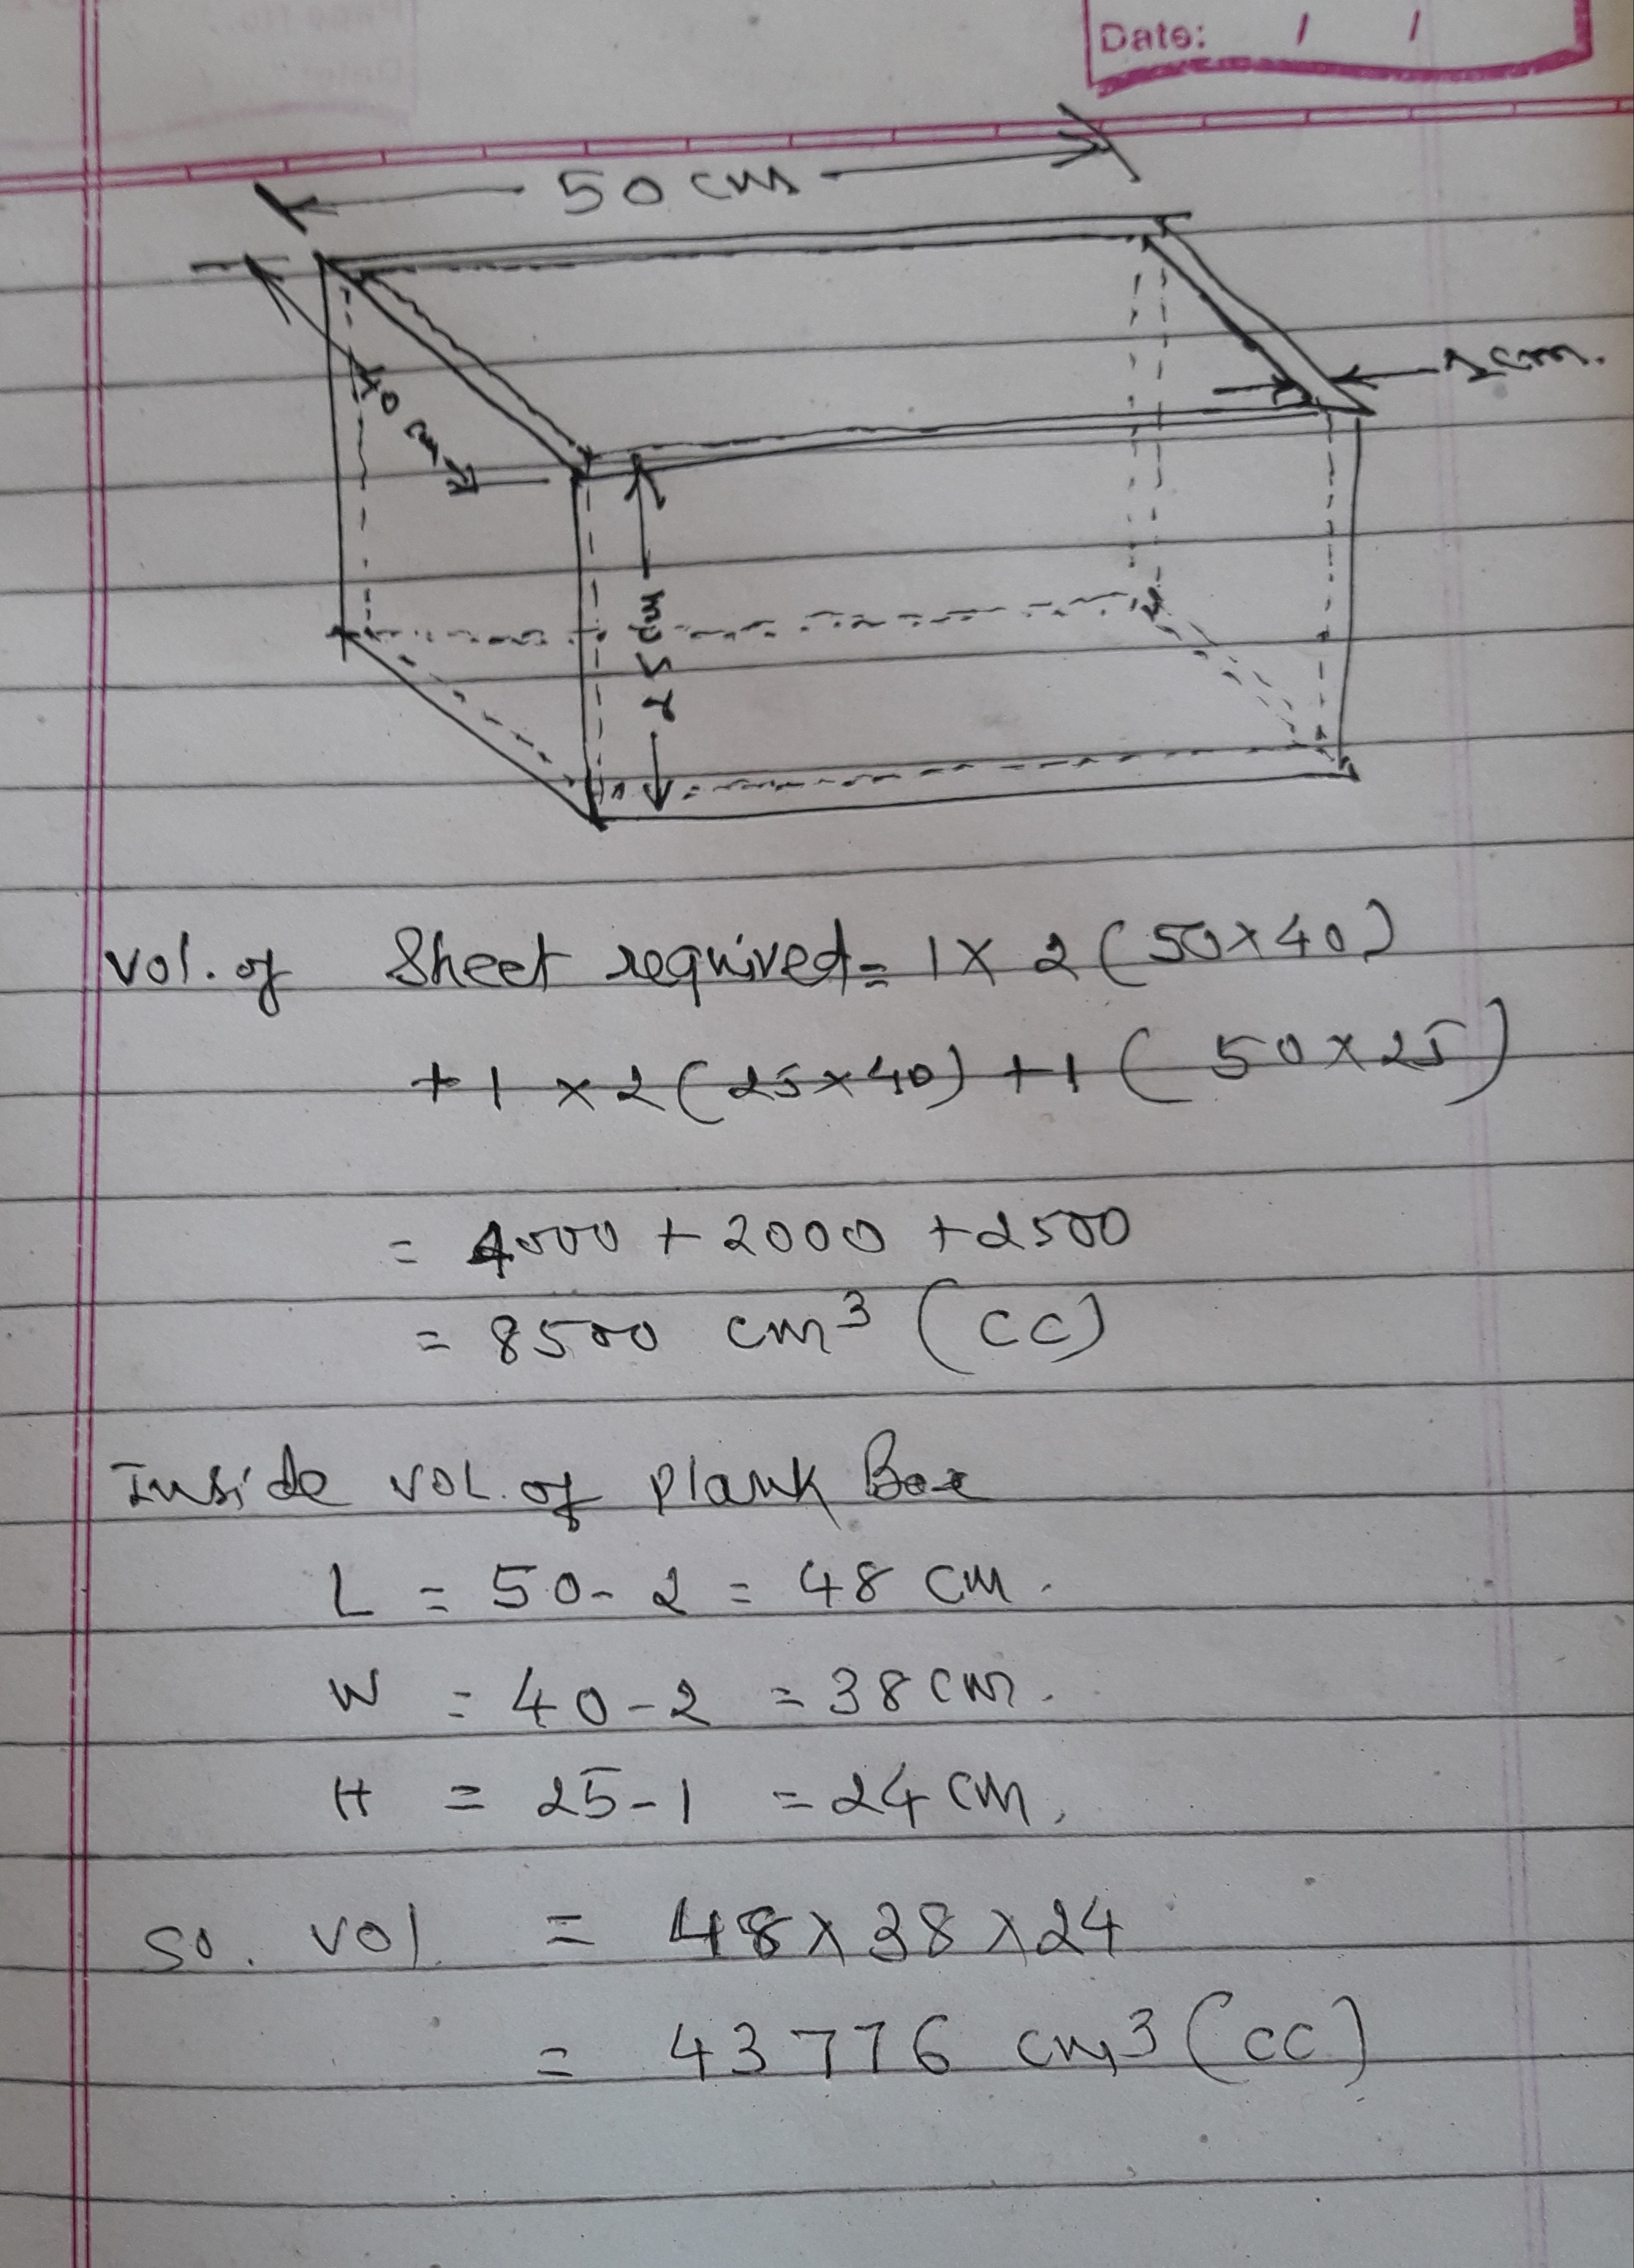 Date: / /
50 cm
40 cm
1 cm.
25 cm
Vol. of Sheet required = 1 x 2 (50x40)
+ 1 x 2 (25x40) + 1 ( 50x25)
= 4000 + 2000 + 2500
= 8500 cm³ (cc)
Inside vol. of Plank Box
L = 50 - 2 = 48 cm.
W = 40 - 2 = 38 cm.
H = 25 - 1 = 24 cm.
So. vol = 48 x 38 x 24
= 43776 cm³ (cc)